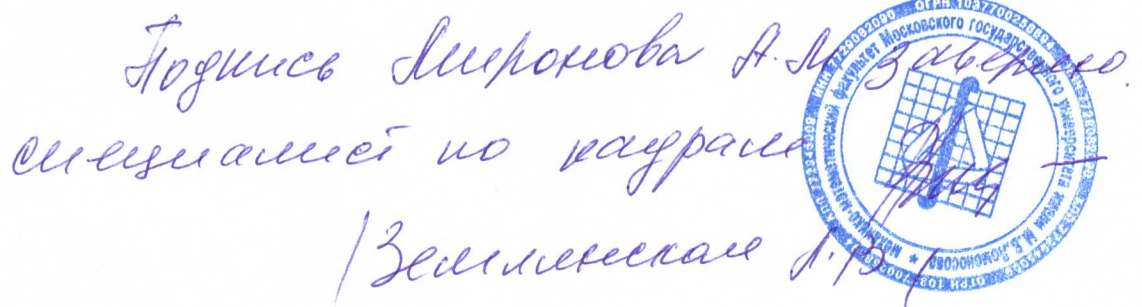 Подпись Миронова А.М. заверяю.
специалист по кадрам
/Землянская Л.В./
механико-математический факультет Московского государственного университета имени М.В.Ломоносова